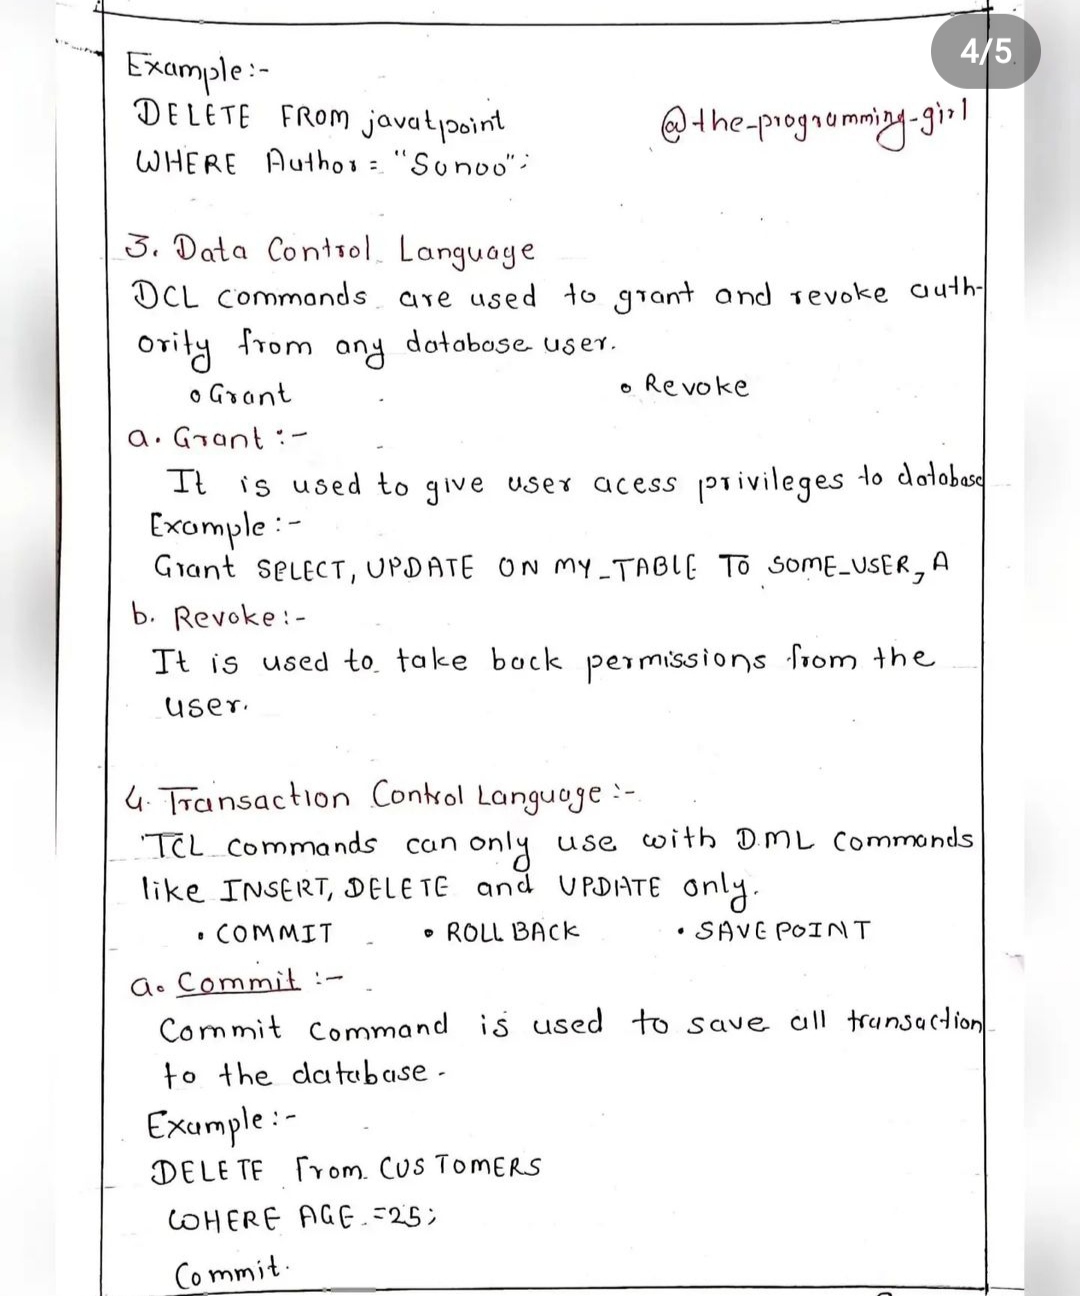 4/5
Example:-
DELETE FROM javatpoint
@the-programming-girl
WHERE Author = "Sonoo";
3. Data Control Language
DCL commands are used to grant and revoke auth-
ority from any database user.
• Grant
• Revoke
a. Grant :-
It is used to give user acess privileges to database
Example :-
Grant SELECT, UPDATE ON MY_TABLE TO SOME_USER, A
b. Revoke :-
It is used to take back permissions from the
user.
4. Transaction Control Language :-
TCL commands can only use with DML commands
like INSERT, DELETE and UPDATE only.
• COMMIT • ROLL BACK • SAVE POINT
a. Commit :-
Commit command is used to save all transaction
to the database.
Example :-
DELETE From CUSTOMERS
WHERE AGE = 25;
Commit.